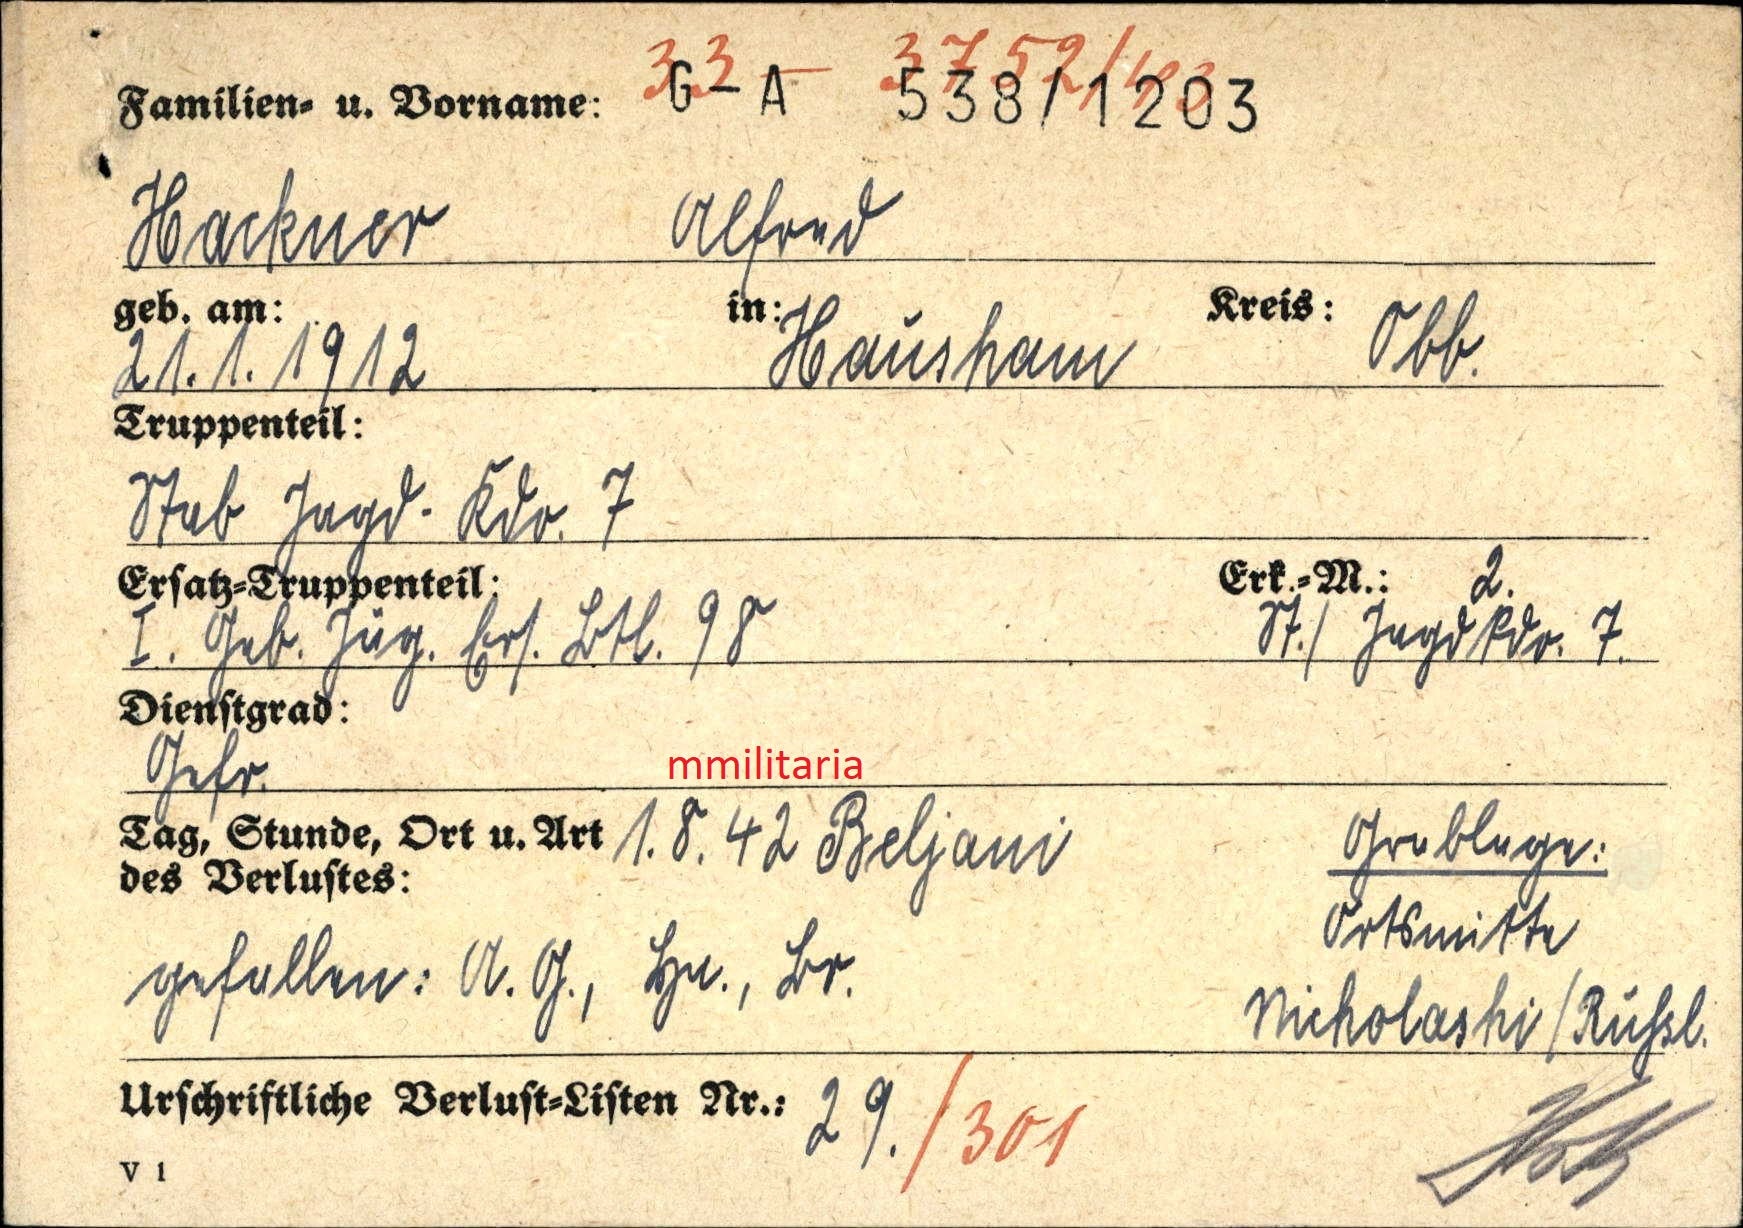 33 - 3752/43
Familien- u. Vorname: G-A 538/1203
Hackner Alfred
geb. am: in: Kreis:
21.1.1912 Hausham Obb.
Truppenteil:
Stab Jagd-Kdo. 7
Ersatz-Truppenteil: Erk.-M.: 2.
I. Geb. Jäg. Ers. Btl. 98 St./ Jagdkdo. 7.
Dienstgrad:
Gefr.
mmilitaria
Tag, Stunde, Ort u. Art 1.8.42 Beljani Grablage:
des Verlustes: Ortsmitte
gefallen: A. G., Br. Nickolaski/Rußl.
Urschriftliche Verlust-Listen Nr.: 29./301
V 1